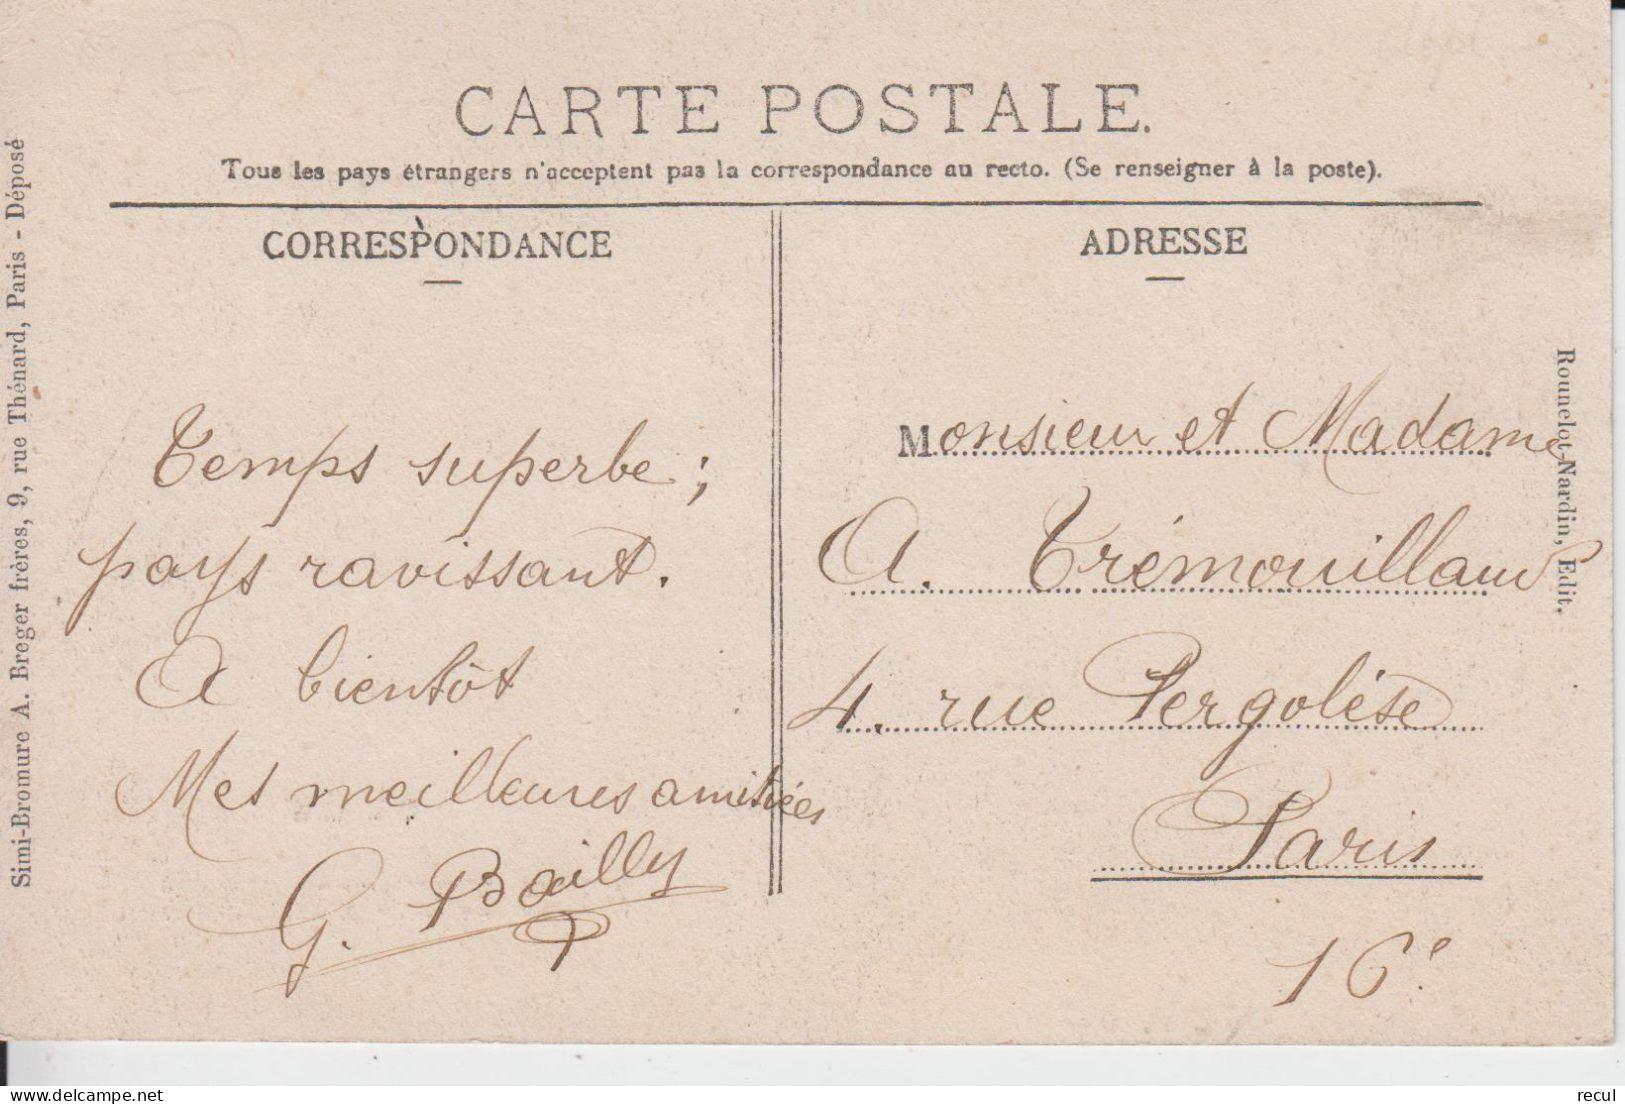 CARTE POSTALE.
Tous les pays étrangers n'acceptent pas la correspondance au recto. (Se renseigner à la poste).
CORRESPONDANCE
Temps superbe ;
pays ravissant.
A bientôt
Mes meilleures amitiées
G. Bailly
ADRESSE
Monsieur et Madame
A. Trémouillaud
4. rue Pergolèse
Paris
16e
Simi-Bromure A. Breger frères, 9, rue Thénard, Paris - Déposé
Rounelot-Nardin, Edit.
delcampe.net
recul